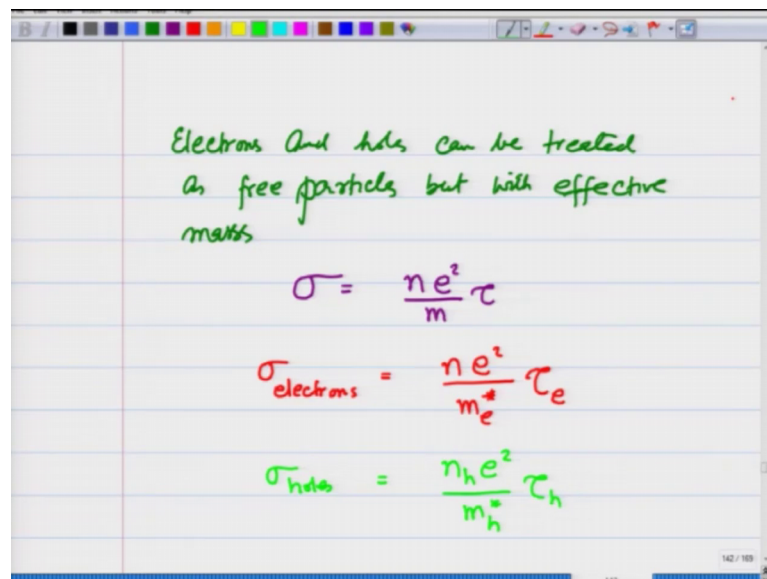 Electrons and holes can be treated
as free particles but with effective
mass
σ = ne²/m τ
σelectrons = ne²/mₑ* τₑ
σholes = nₕe²/mₕ* τₕ
142 / 169